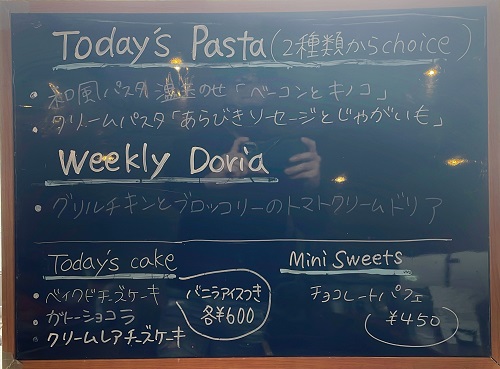 Today's Pasta (2種類からchoice)
・和風パスタ 温玉のせ「ベーコンとキノコ」
・クリームパスタ「あらびきソーセージとじゃがいも」
Weekly Doria
・グリルチキンとブロッコリーのトマトクリームドリア
Today's cake
・ベイクドチーズケーキ
・ガトーショコラ
・クリームレアチーズケーキ
バニラアイスつき
各¥600
Mini Sweets
チョコレートパフェ
¥450